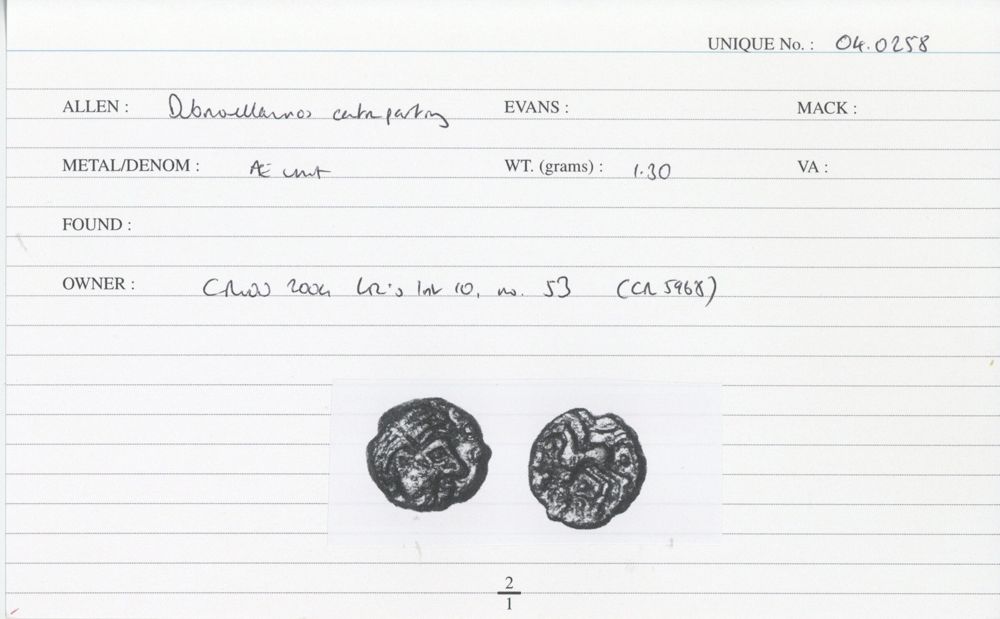 UNIQUE No. : 04.0258
ALLEN : Dubnovellaunos EVANS : MACK :
METAL/DENOM : Æ unit WT. (grams) : 1.30 VA :
FOUND :
OWNER : 2004 10, no. 53 (CR 5968)
2
1